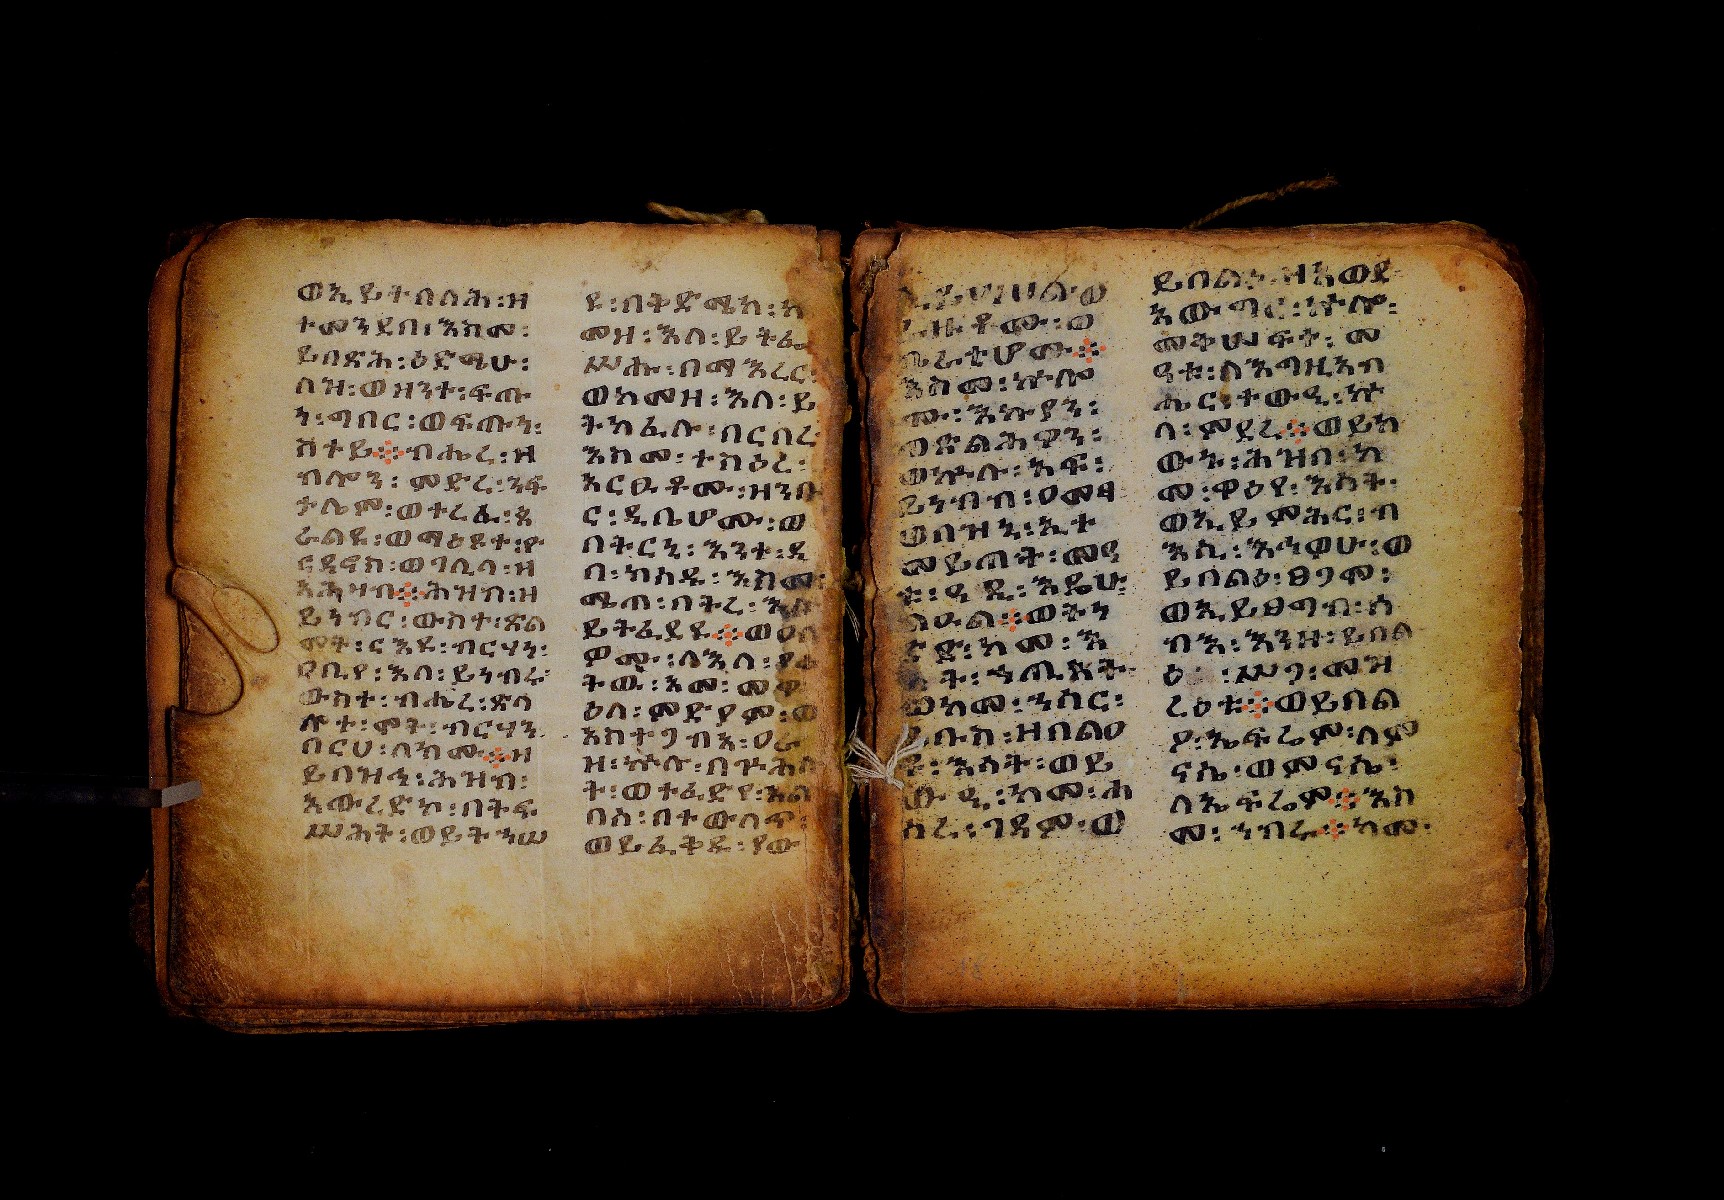 ወኢይትበሰሕ፡ዘ
ተመንደበ፡እስመ፡
ይበጽሕ፡ዕድሜሁ፡
ለዝ፡ወዘንተ፡ፍጡ
ነ፡ግበር፡ወፍጡነ፡
ስተይ፨ብሔረ፡ዘ
ብሎን፡ምድረ፡ንፍ
ታሌም፡ወተረፈ፡
ራልዩ፡ወማዕዶተ፡ዮ
ርዳኖስ፡ወገሊላ፡ዘ
አሕዛብ፨ሕዝብ፡ዘ
ይነብር፡ውስተ፡ጽል
መት፡ርእዩ፡ብርሃነ፡
ዐቢየ፡እለ፡ይነብሩ፡
ውስተ፡ብሔረ፡ጽላ
ሎተ፡ሞት፡ብርሃን፡
በርሀ፡ላክሙ፨ዘ
ይበዝኅ፡ሕዝብ፡
አውረድከ፡በትፍ
ሥሕት፡ወይትንሠ
ዩ፡በቅድሜከ፡ከ
መዘ፡እለ፡ይትፌ
ሥሑ፡በማእረር፡
ወከመዘ፡እለ፡ይ
ትካፈሉ፡በርበረ
እስመ፡ተስዕረ፡
አርዑቶሙ፡ዘንቡ
ር፡ዲቤሆሙ፡ወ
በትርኒ፡እንተ፡ዲ
በ፡ክሳዱ፡እስመ፡
ሜጠ፡በትረ፡እለ
ይትፈደዩ፨ወዐለ
ዎሙ፡ለእለ፡
ትዉ፡አመ፡መዋ
ዕለ፡ምድያም፡ወ
እስተጋብአ፡ዐራ
ዘ፡ኵሉ፡በጕሕሉ
ት፡ወተፈድየ፡አል
ባስ፡በተውላጥ፡
ወይፈቅዱ፡የው
ቤራቲሆሙ፨
እስመ፡ኵሎ
ሙ፡እኩያን፡
ወጽልሕዋን፡
ወኵሉ፡አፍ፡
ይነብብ፡ዐመፃ
ወበዝኒ፡ኢተ
መይጠት፡መዓ
ቱ፡ዓዲ፡እዴሁ፡
ልዑል፨ወትነ
ድድ፡ከመ፡እ
ት፡ኀጢአት፡
ወከመ፡ንስር፡
ይቡስ፡ዘበልዐ
እሳት፡ወይ
ውዒ፡ከመ፡ሐ
ሰረ፡ገዳም፡ወ
ይበልዕ፡ዘአወደ
አውግር፡ኵሎ፡
መቅሠፍተ፡መ
ዓቱ፡ለእግዚአብ
ሔር፡ተውዒ፡ኵ
ላ፡ምድረ፨ወይከ
ውኑ፡ሕዝብ፡ከ
መ፡ዋዕየ፡እሳት፡
ወኢይምሕር፡ብ
እሲ፡እኅዋሁ፡ወ
ይበልዕ፡ፀጋሙ፡
ወኢይፀግብ፡ሰ
ብእ፡እንዘ፡ይበል
ዕ፡ሥጋ፡መዝ
ረዕቱ፨ወይበል
ዖ፡ኤፍሬም፡ለም
ናሴ፡ወምናሴ፡
ለኤፍሬም፨እስ
መ፡ኀብሩ፨ከመ፡